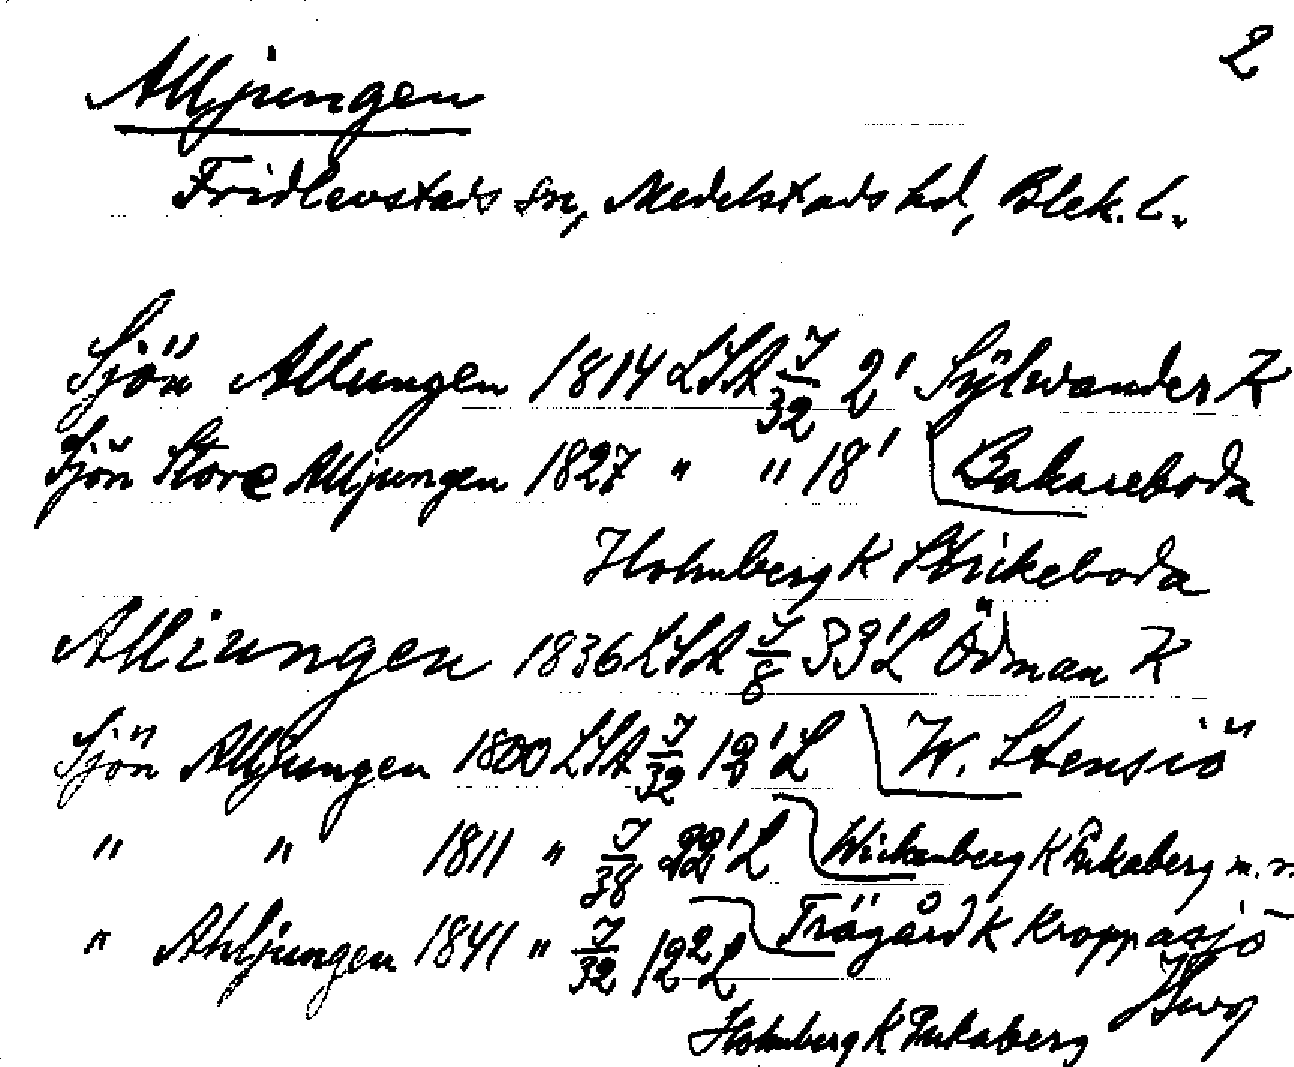 2
Alljungen
Fridlevstads sn, Medelstads hd, Blek. L.
Sjön Allungen 1814 LSA J/32 2' Sylwander K
Sjön Store Alljungen 1827 " " 18' Bakareboda
Holmberg K Strikeboda
Alliungen 1836 LSA J/8 33' L Ödman K
Sjön Alljungen 1800 LSA J/32 12' L W. Stensiö
" " 1811 " J/38 22' L Wickenberg K Pukaberg m. n.
" Ahljungen 1841 " J/32 12² L Trägård K Kroppasjö
Holmberg K Pukaberg